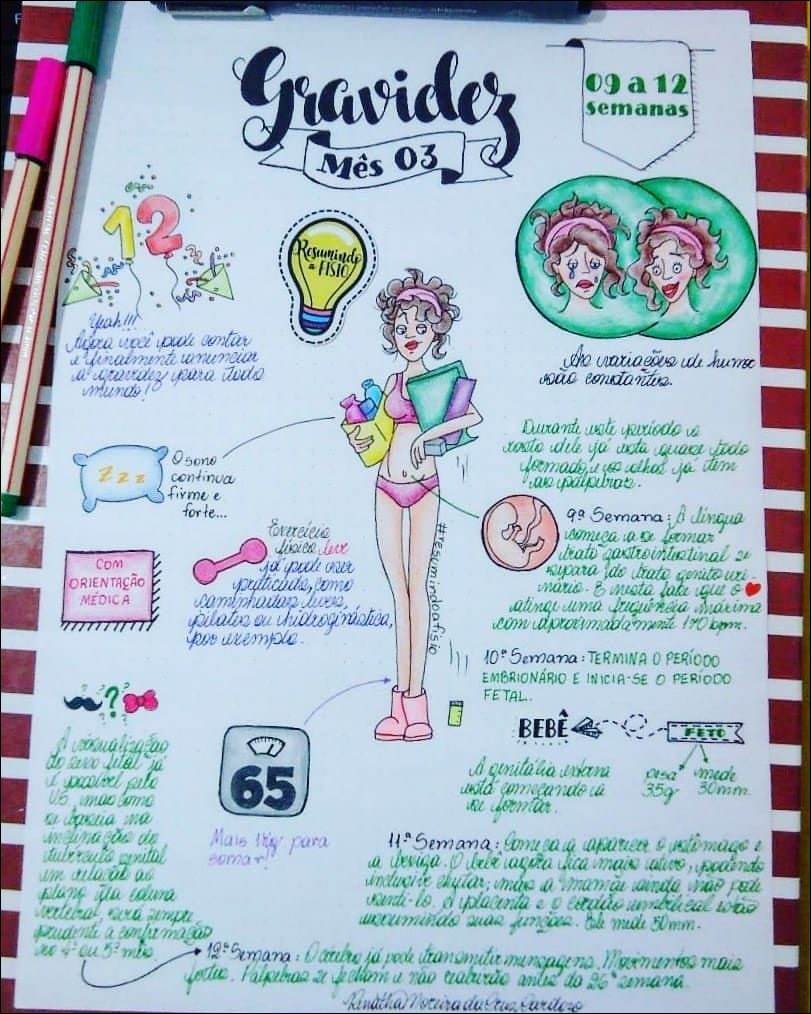 Gravidez
Mês 03
09 a 12
semanas
12
Yeah!!!
Agora você pode contar
e finalmente anunciar
a gravidez para todo
mundo!
Resumindo
a FISIO
As variações de humor
são constantes.
Durante este período o
rosto dele já está quase todo
formado, e os olhos já tem
as pálpebras.
zzz
O sono
continua
firme e
forte...
9ª Semana: A língua
começa a se formar
trato gastrointestinal se
separa do trato genitouri-
nário. E nesta fase que o ❤
atinge uma frequência máxima
com aproximadamente 170 bpm.
COM
ORIENTAÇÃO
MÉDICA
Exercício
físico leve
já pode ser
praticado, como
caminhadas leves,
pilates ou hidroginástica,
por exemplo.
#resumindoafisio
10ª Semana: TERMINA O PERÍODO
EMBRIONÁRIO E INICIA-SE O PERÍODO
FETAL.
BEBÊ
FETO
A genitália externa
está começando a
se formar.
pesa
35g
mede
30mm.
?
A visualização
do sexo fetal já
é possível pelo
US, mas como
se baseia na
inclinação do
tubérculo genital
em relação ao
plano da coluna
vertebral, será sempre
prudente a confirmação
no 4º ou 5º mês.
65
Mais 1kg para
somar!
11ª Semana: Começa a aparecer o estômago e
a bexiga. O bebê agora fica mais ativo, podendo
inclusive chutar, mas a mamãe ainda não pode
senti-lo. A placenta e o cordão umbilical estão
assumindo suas funções. Ele mede 50mm.
12ª Semana: O cérebro já pode transmitir mensagens. Movimentos mais
fortes. Pálpebras se fecham e não reabrirão antes da 26ª semana.
Renatha Moreira da Cruz Cardoso